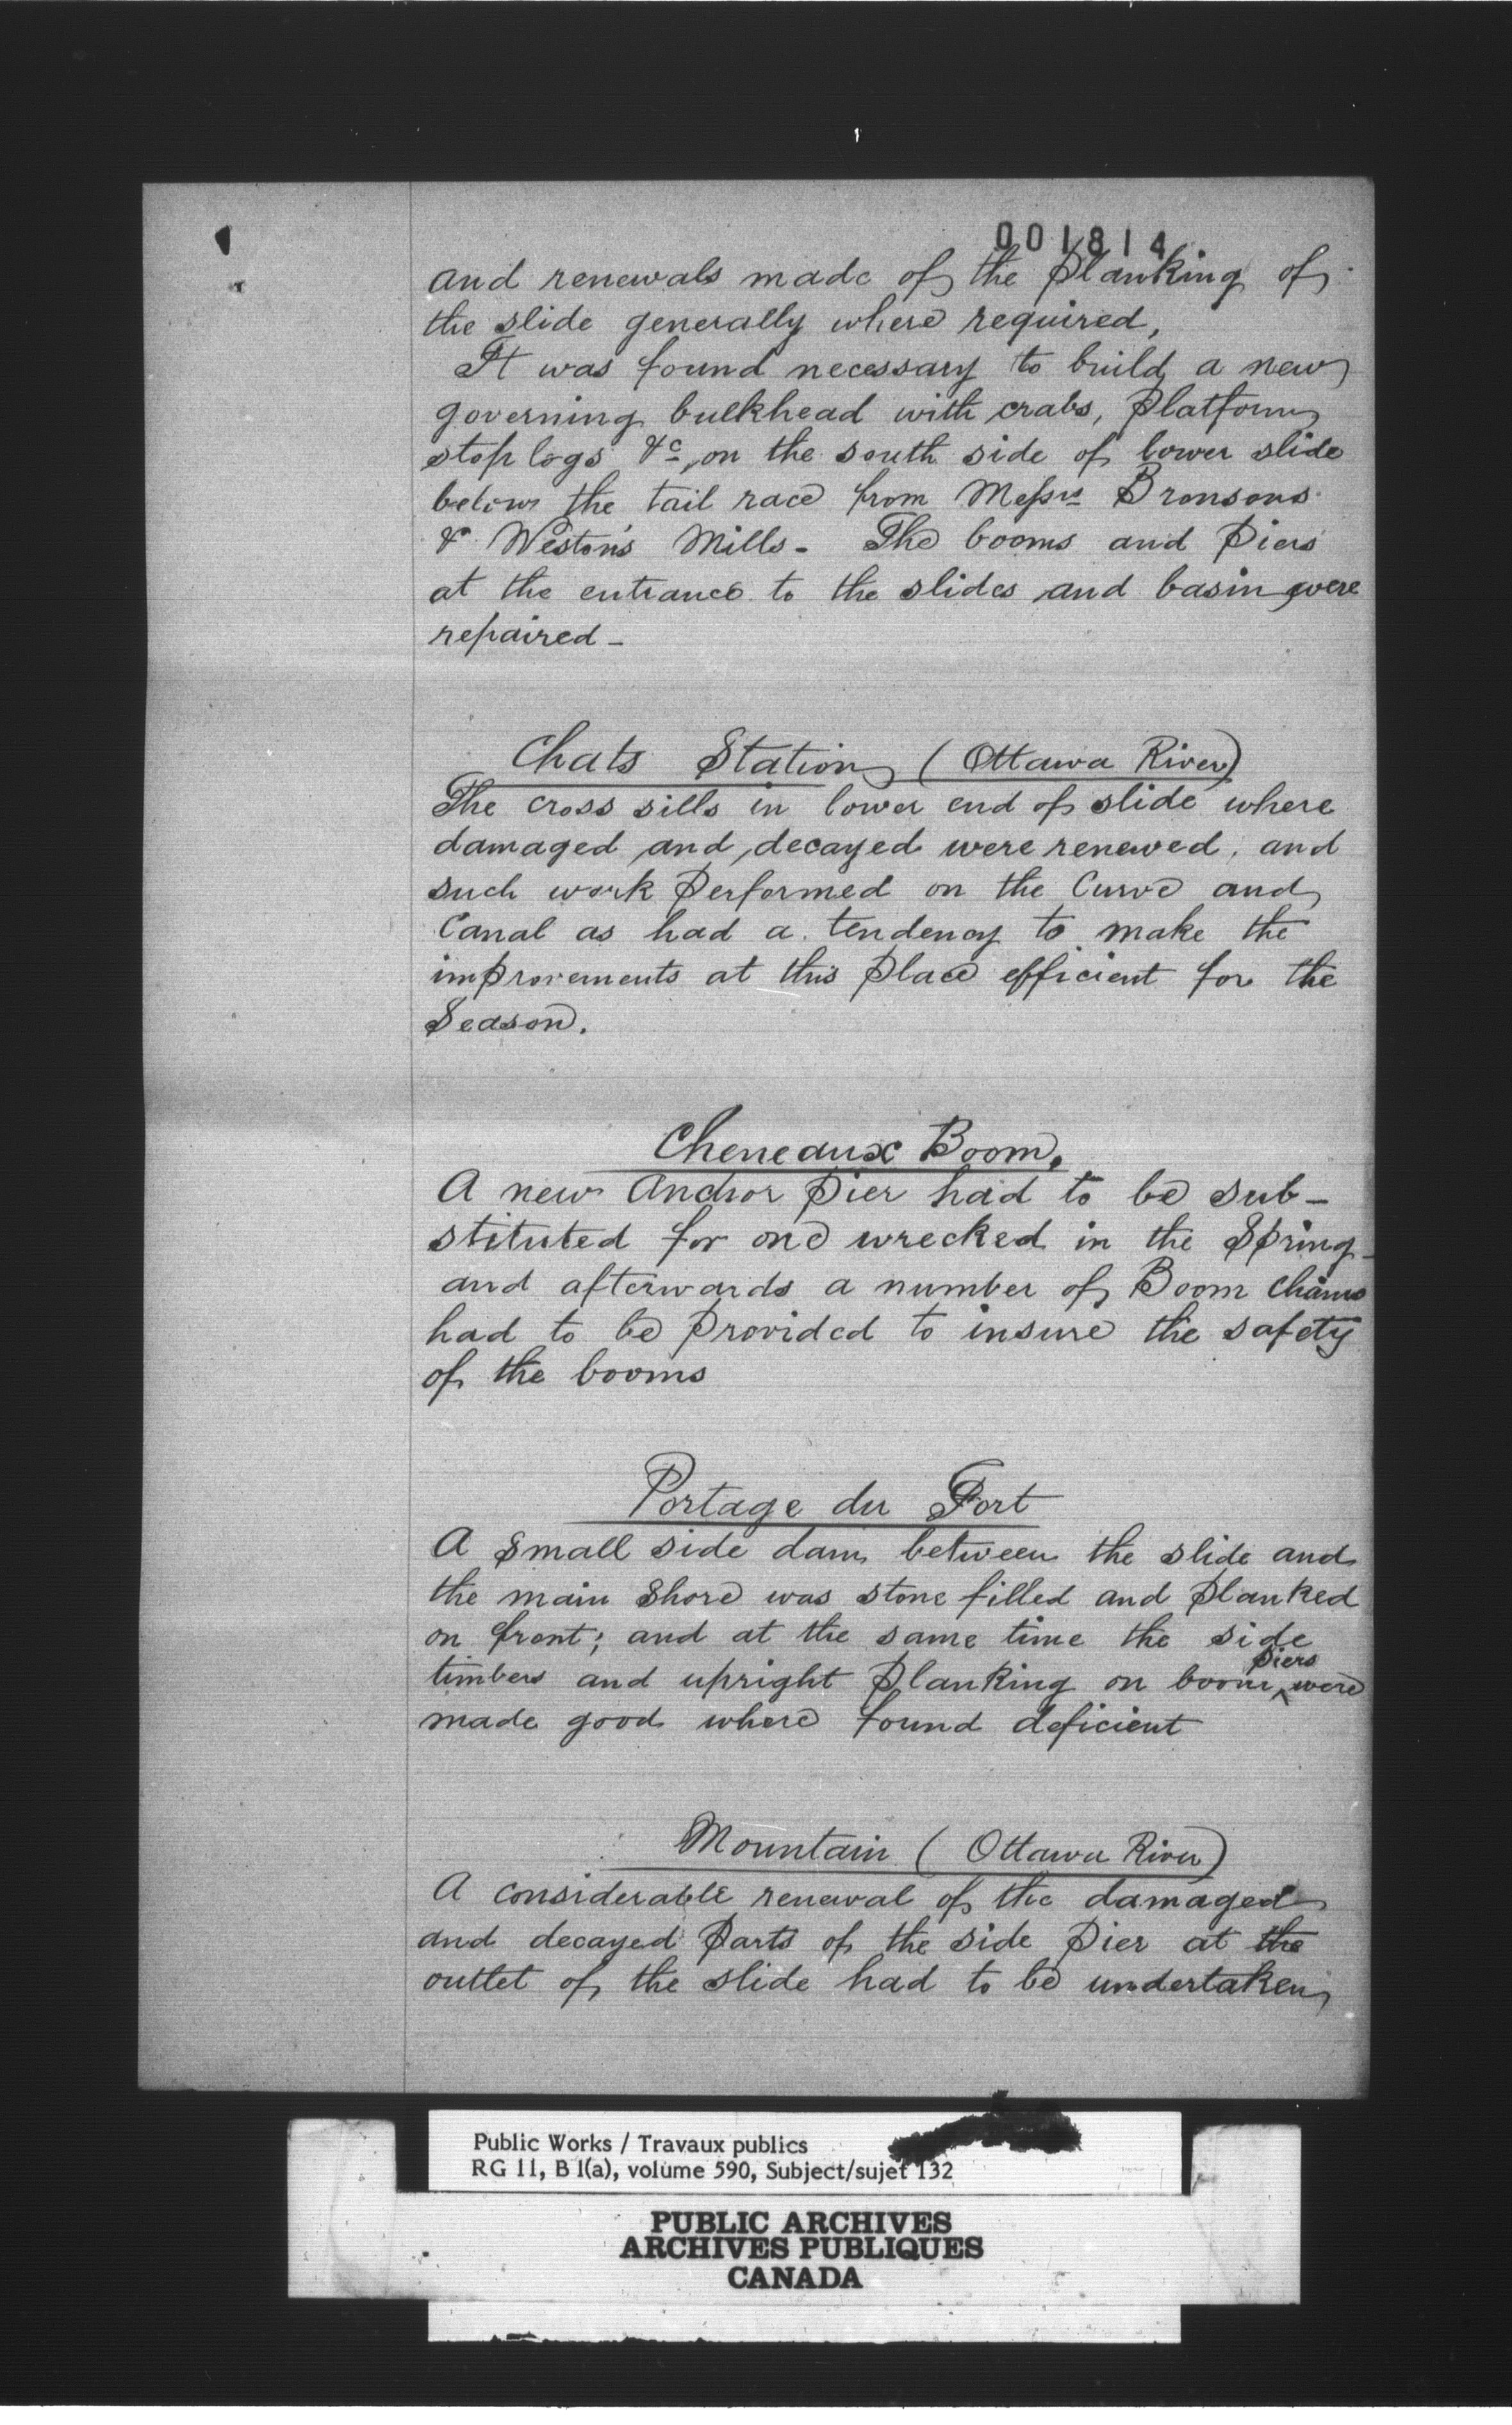 001814
and renewals made of the planking of
the slide generally where required,
It was found necessary to build a new
governing bulkhead with crabs, platform
stop logs &c, on the south side of lower slide
below the tail race from Messrs Bronsons
& Weston's Mills - The booms and Piers
at the entrance to the slides and basin were
repaired -
Chats Station (Ottawa River)
The cross sills in lower end of slide where
damaged and decayed were renewed, and
such work performed on the Curve and
Canal as had a tendency to make the
improvements at this place efficient for the
Season.
Cheneaux Boom.
A new Anchor pier had to be sub-
stituted for one wrecked in the Spring -
and afterwards a number of Boom Chains
had to be provided to insure the safety
of the booms
Portage du Fort
A small side dam between the slide and
the main shore was stone filled and planked
on front; and at the same time the side
timbers and upright planking on boom piers were
made good where found deficient
Mountain (Ottawa River)
A considerable renewal of the damaged
and decayed parts of the side pier at the
outlet of the slide had to be undertaken
Public Works / Travaux publics
RG 11, B 1(a), volume 590, Subject/sujet 132
PUBLIC ARCHIVES
ARCHIVES PUBLIQUES
CANADA